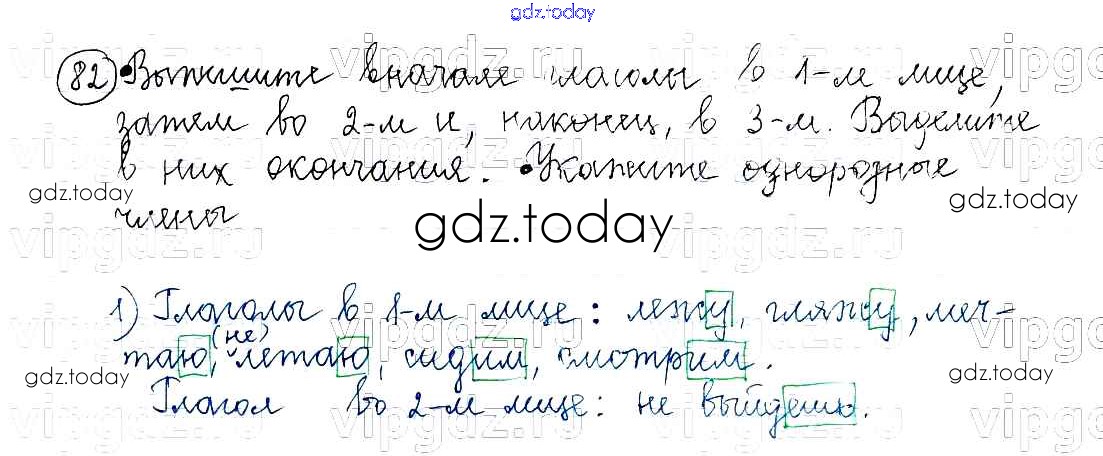 gdz.today
82 •Выпишите вначале глаголы в 1-м лице,
затем во 2-м и, наконец, в 3-м. Выделите
в них окончания. •Укажите однородные
gdz.today
gdz.today
члены
gdz.today
1) Глаголы в 1-м лице: лежу, гляжу, меч-
(не)
таю, летаю, сидим, смотрим.
gdz.today
gdz.today
Глагол во 2-м лице: не выйдешь.
vipgdz.ru